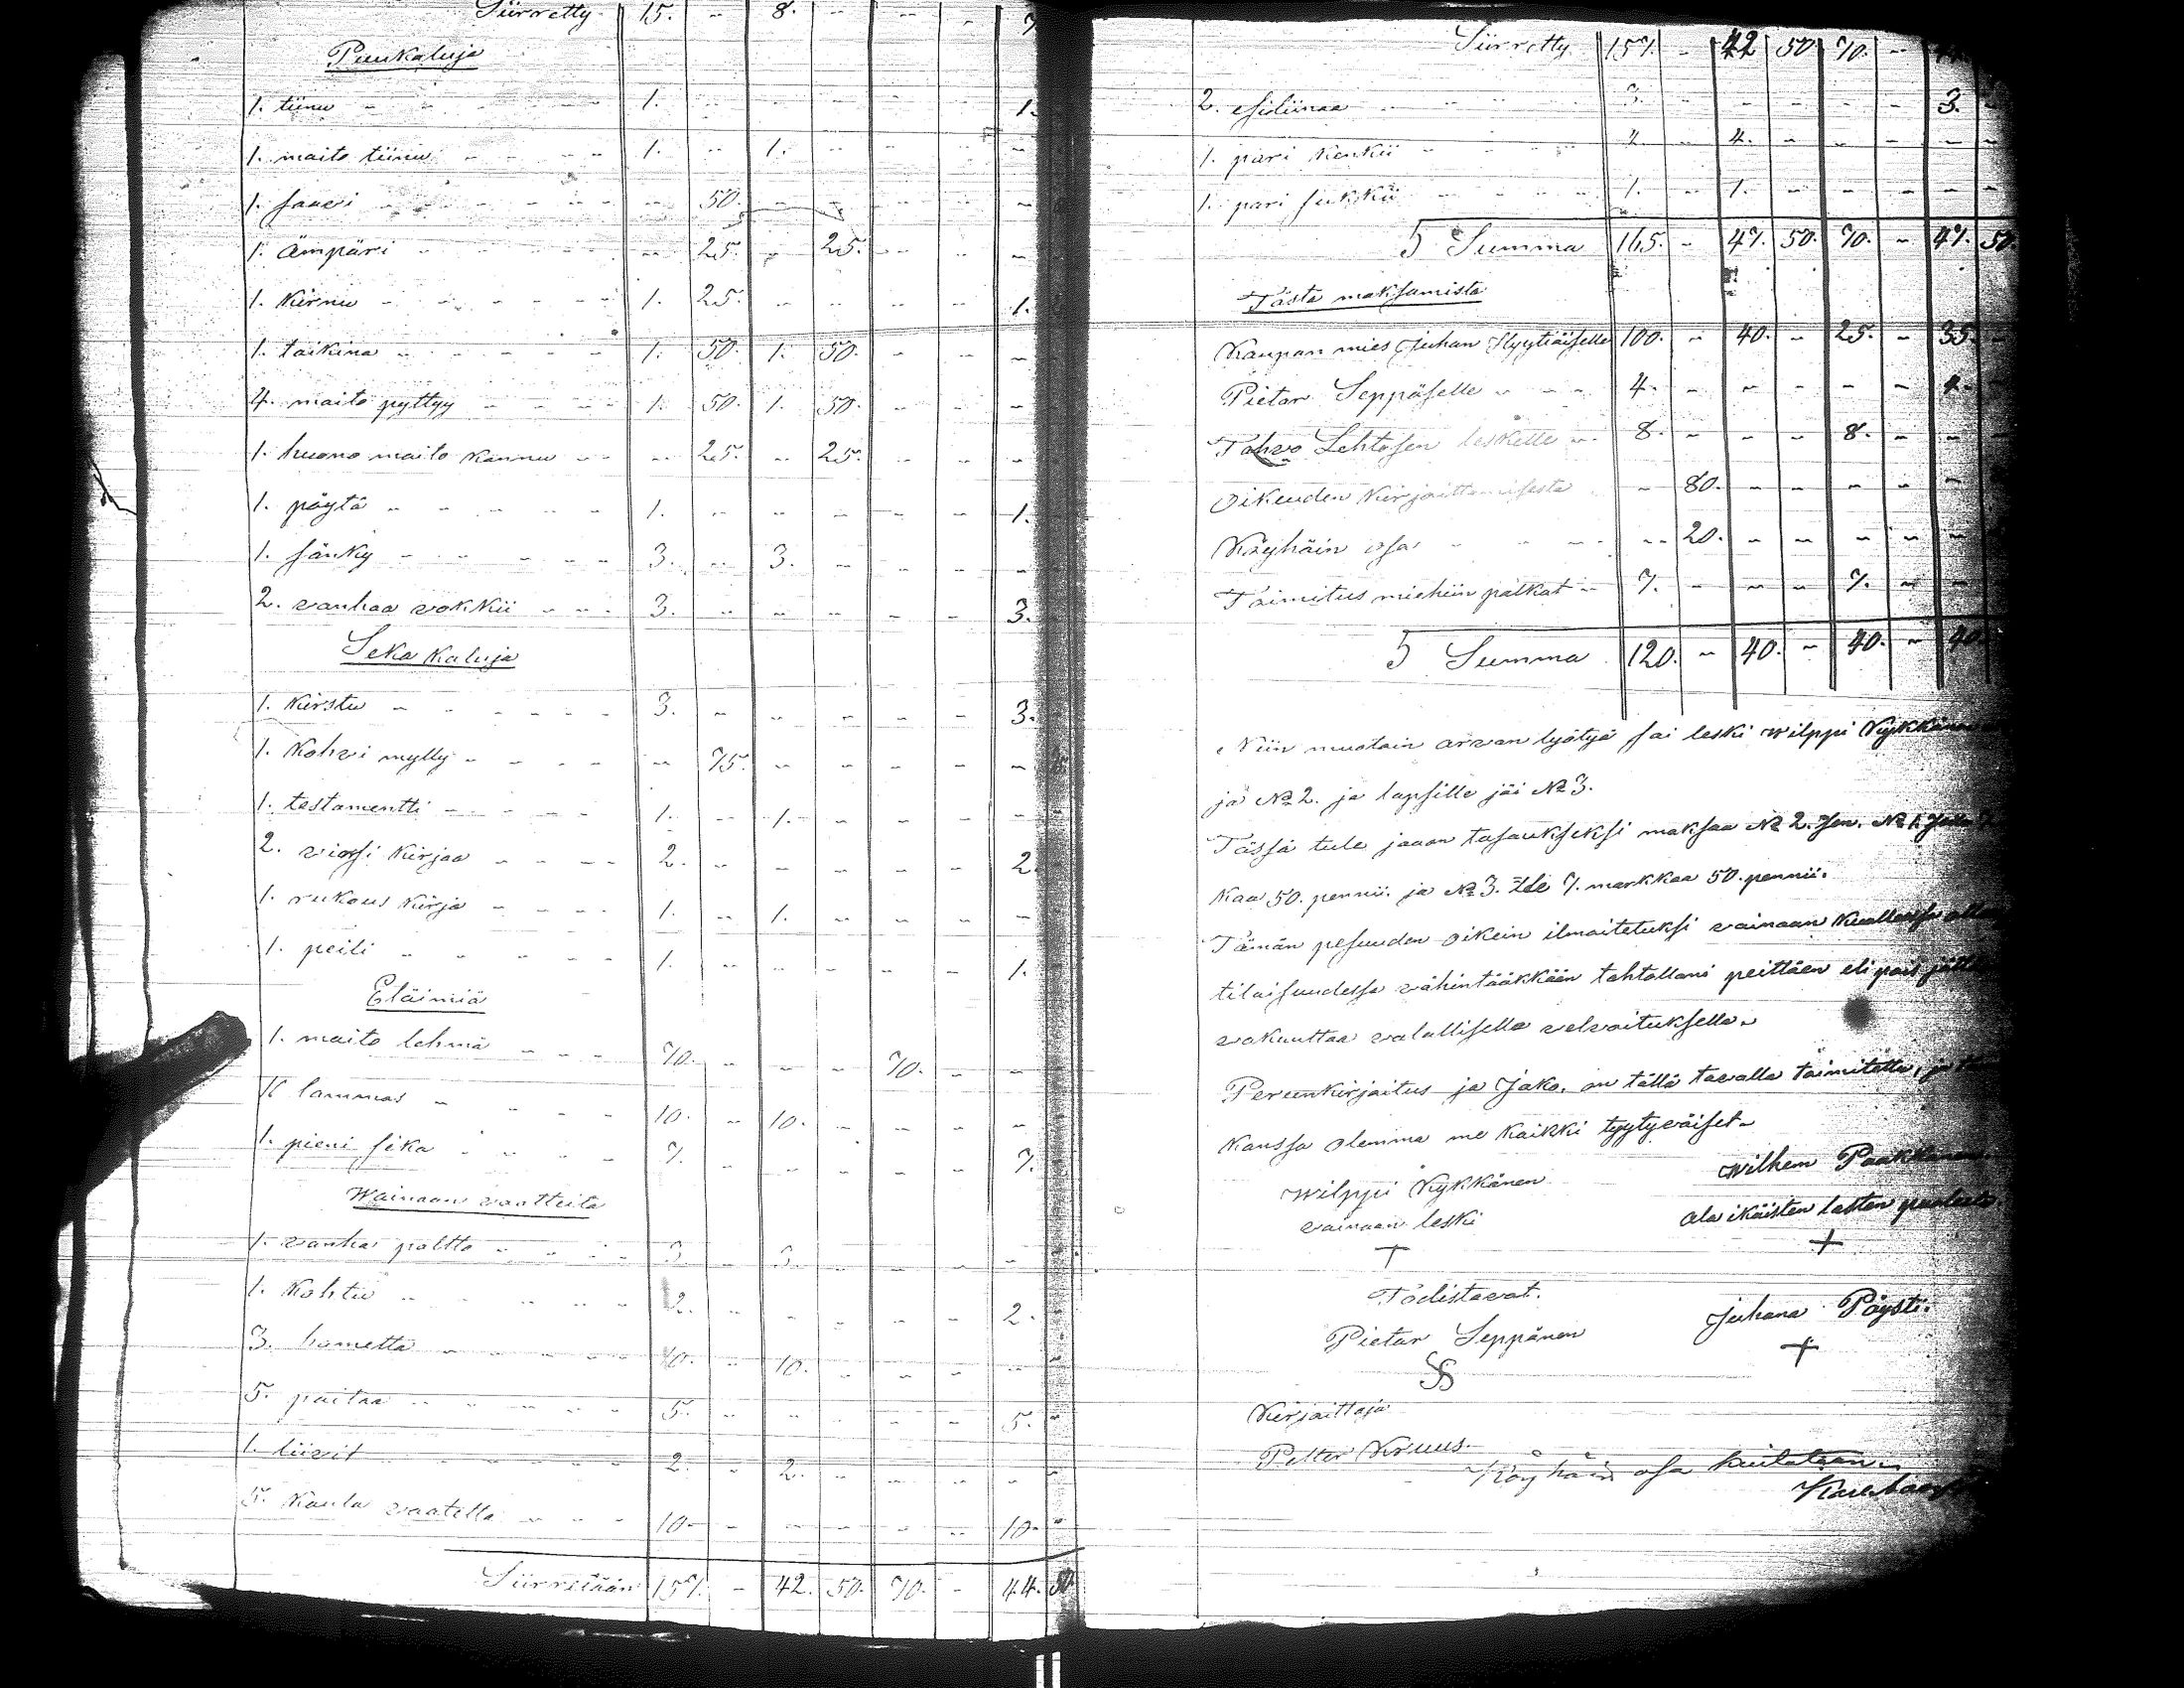 Siirretty 15. - 8. - - - 7
Puukaluja
1. tiinu - - 1. - - - - - 1.
1. maito tiinu - - 1. - 1. - - - -
1. saavi - - - 50. - - - - -
1. ämpäri - - - 25. - 25. - - -
1. Kirnu - - 1. 25. - - - - 1.
1. taikina - - 1. 50. 1. 50. - - -
4. maito pyttyy - - 1. 50. 1. 50. - - -
1. huono maito Kannu - - - 25. - 25. - - -
1. pöytä - - 1. - - - - - 1.
1. sänky - - 3. - 3. - - - -
2. vanhaa vokkii - - 3. - - - - - 3.
Seka Kaluja
1. Kirstu - - 3. - - - - - 3.
1. Kohvi mylly - - - 75. - - - - -
1. testamentti - - 1. - 1. - - - -
2. virsi Kirjaa - - 2. - - - - - 2.
1. rukous Kirja - - 1. - 1. - - - -
1. peili - - 1. - - - - - 1.
Eläimiä
1. maito lehmä - - 70. - - - 70. - -
1. lammas - - 10. - 10. - - - -
1. pieni sika - - 7. - - - - - 7.
Wainaan vaatteita
1. vanha paltto - - 3. - 3. - - - -
1. Kohtu - - 2. - - - - - 2.
3. hametta - - 10. - 10. - - - -
5. paitaa - - 5. - - - - - 5. -
1. liivit - - 2. - 2. - - - -
5. Kaula vaatetta - - 10. - - - - - 10. -
Siirretään 157. - 42. 50. 70. - 44. 50.
Siirretty 157. - 42 50. 70. - 44.
2. esiliinaa - - 3. - - - - - 3.
1. pari Kenkii - - 4. - 4. - - - - -
1. pari sukkii - - 1. - 1. - - - - -
S Summa 165. - 47. 50. 70. - 47. 50.
Tästä maksamista
Kaupan mies Juhan Kyytiäiselle 100. - 40. - 25. - 35. -
Pietar Seppäselle - - 4. - - - - - 4. -
Tahvo Lehtosen leskelle - 8. - - - 8. - -
Oikeuden Kirjoittamisesta - 80. - - - - -
Köyhäin osa - - - 20. - - - - -
Toimitus miehiin palkat - 7. - - - 7. - -
S Summa 120. - 40. - 40. - 40.
Niin muotoin arvan lyötyä sai leski Wilppi Kykkänen
ja № 2. ja lapsille jäi № 3.
Tässä tule jaaon tasaukseksi maksaa № 2. sen. № 1.
Kaa 50. pennii. ja № 3. lle 7. markkaa 50. pennii.
Tämän pesuuden oikein ilmoitetuksi vainaan
tilaisuudessa vähintääkkään tahtollani peittäen eli pois
vakuuttaa valallisella velvoituksella.
Perunkirjoitus ja Jako. on tällä tavalla toimitettu, ja
Kanssa olemma me Kaikki tyytyväiset.
Wilppi Kykkänen Wilhem
vainaan leski ala ikäisten lasten puolesta.
Todistavat.
Pietar Seppänen Juhana Pöysti.
Kirjoittaja
Petter Kruus.
Köyhäin osa kuitataan